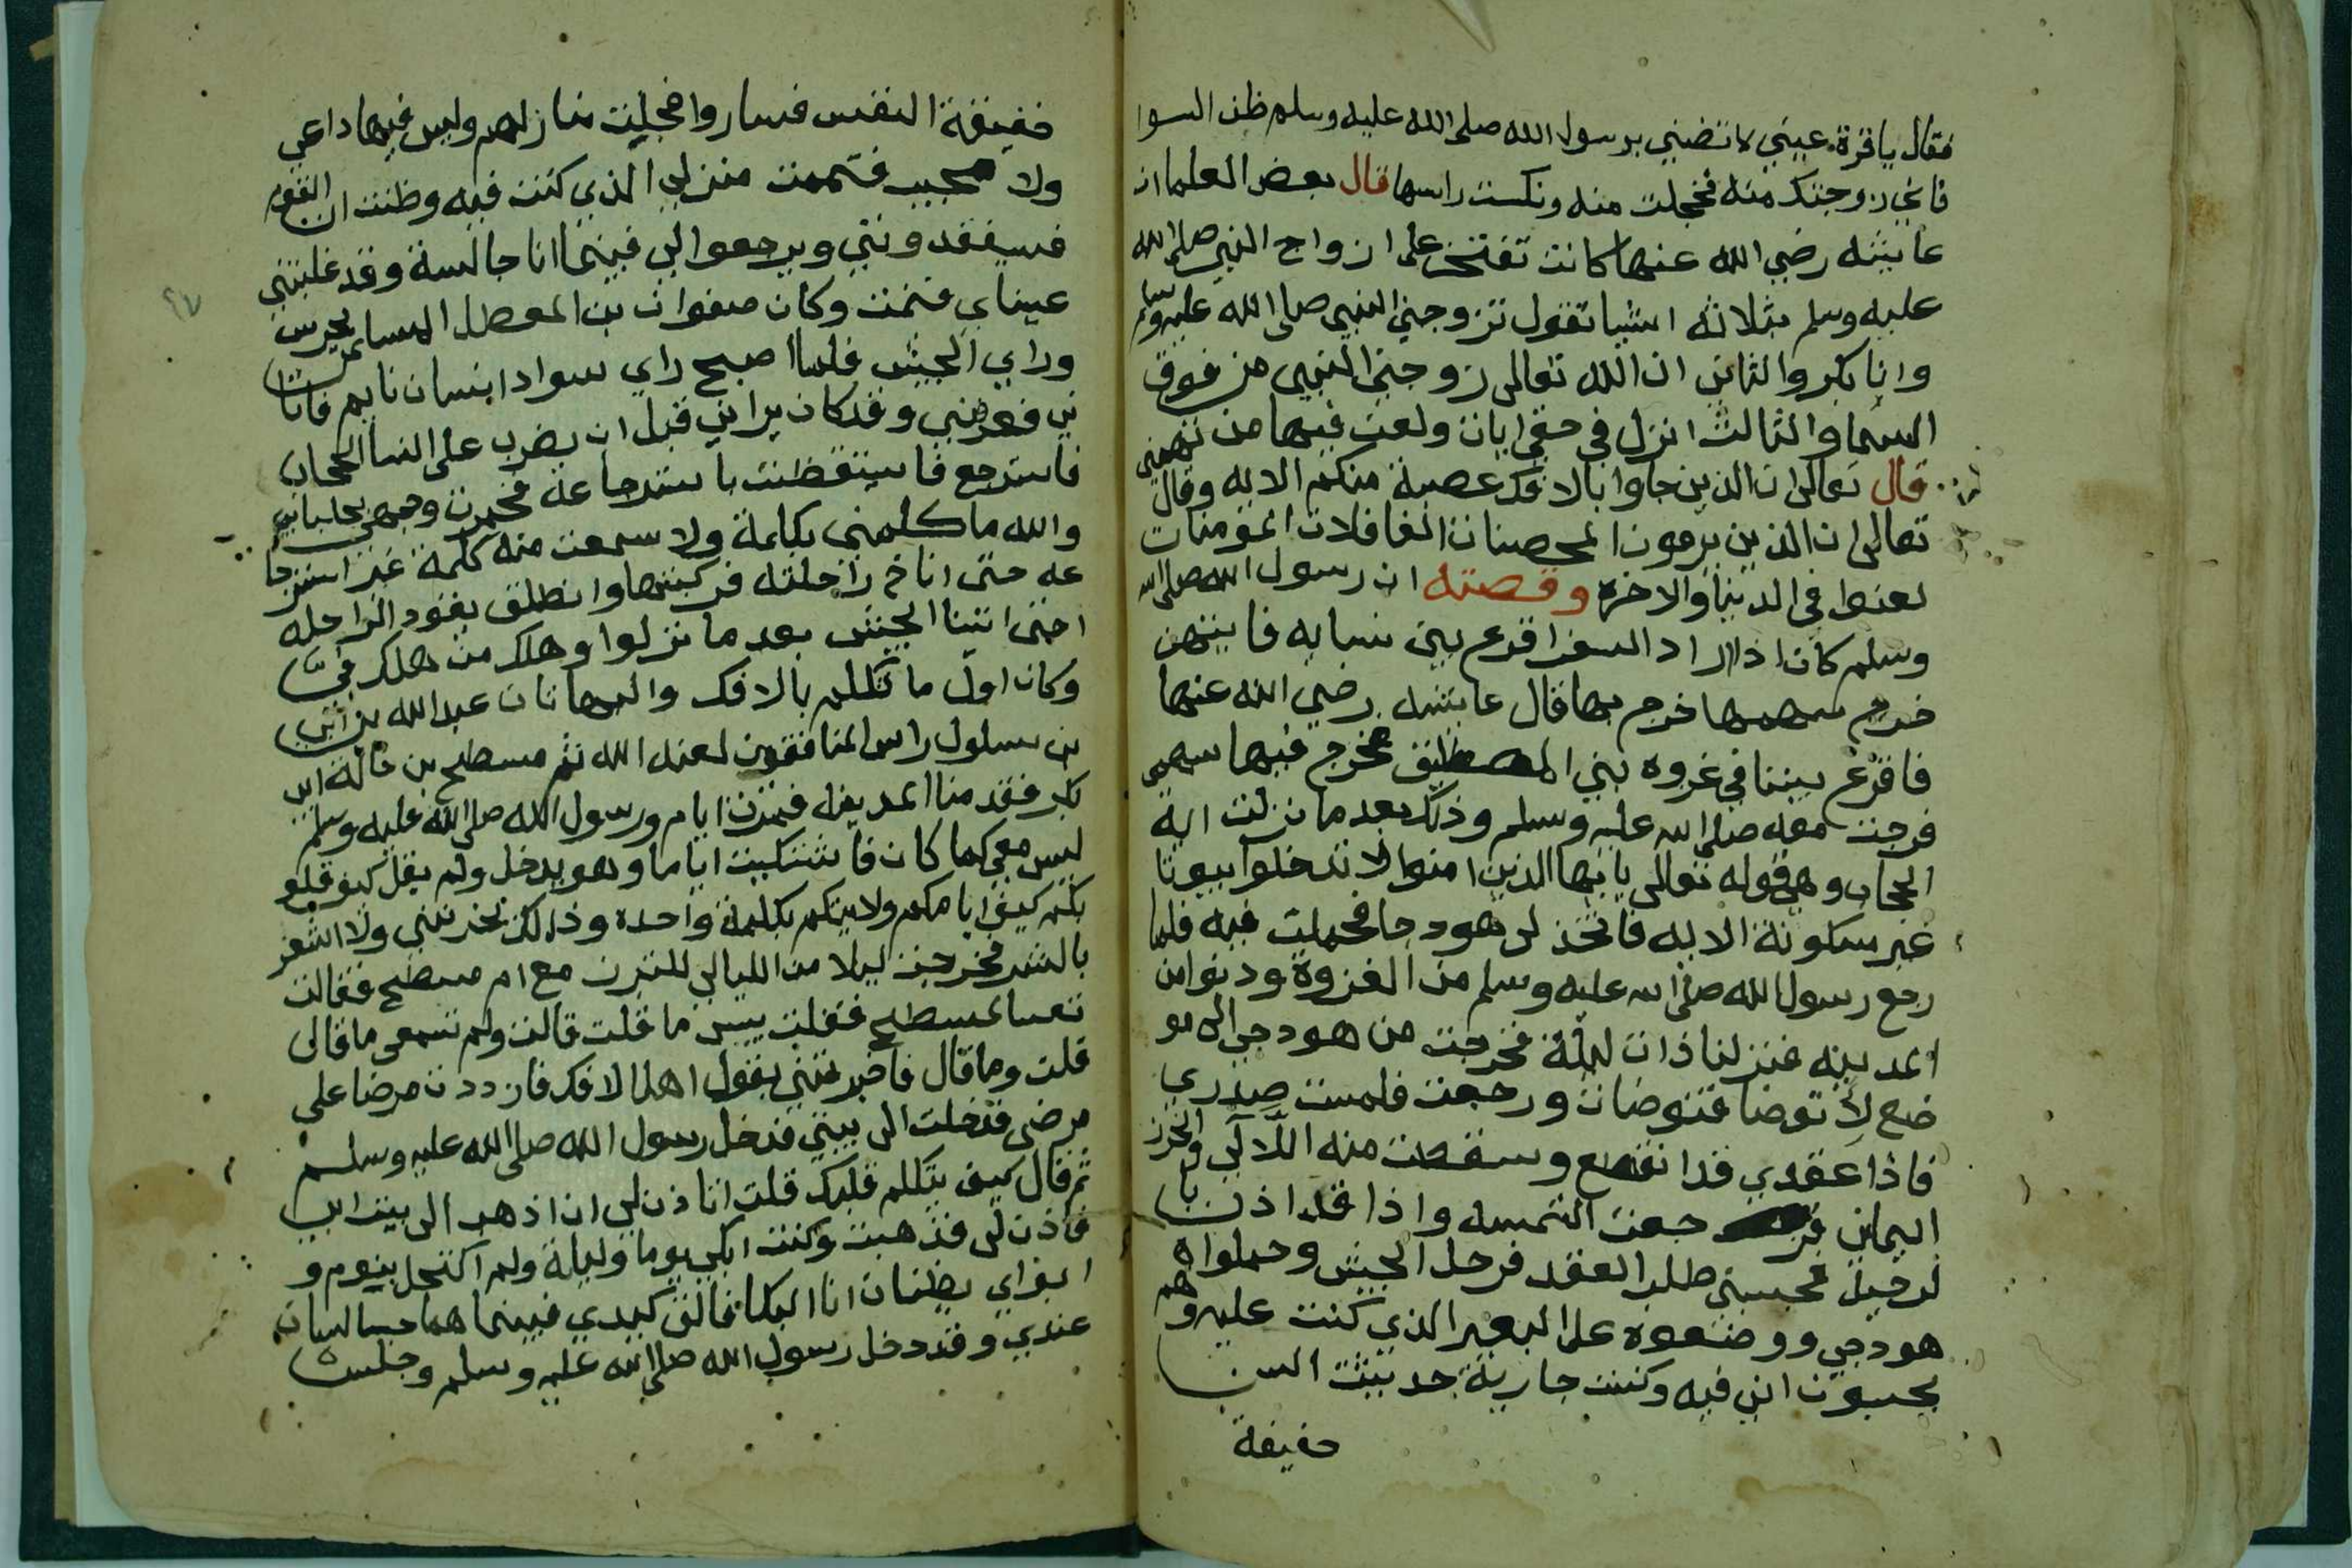 فقال ياقرة عيني لا تضني برسول الله صلى الله عليه وسلم ظن السوا
فاني زوجتك منه فخجلت منه ونكست راسها قال بعض العلما ان
عايشه رضي الله عنها كانت تفتخر على ازواج النبي صلى الله
عليه وسلم بثلاثه اشيا تقول تزوجني النبي صلى الله عليه وسلم
وانا بكر والثاني ان الله تعالى زوجني النبي من فوق
السما والثالث انزل في حقي ايات ولعن فيها من تهمني
قال تعالى ان الذين جاوا بالافك عصبة منكم الايه وقال
تعالى ان الذين يرمون المحصنات الغافلات المومنات
لعنوا في الدنيا والاخره وقصته ان رسول الله صلى الله
وسلم كان اذا اراد السفر اقرع بين نسايه فايتهن
خرج سهمها خرج بها قال عايشه رضي الله عنها
فاقرع بيننا في غزوه بني المصطلق فخرج فيها سهمي
فرجت معه صلى الله عليه وسلم وذلك بعد ما نزلت اية
الحجاب وهي قوله تعالى يايها الذين امنوا لا تدخلوا بيوتا
غير مسكونة الايه فاتخذ لي هودجا فحملت فيه فلما
رجع رسول الله صلى الله عليه وسلم من الغزوة ودنوا من
المدينه فنزلنا ذات ليلة فخرجت من هودجي الى مو
ضع لا توضا فتوضات ورجعت فلمست صدري
فاذا عقدي قد انقطع وسقطت منه اللآلي والخرز
اليماني فرجعت التمسه واذا قد اذن با
لرحيل فحبسني طلب العقد فرحل الجيش وحملواه
هودجي ووضعوه على البعير الذي كنت عليه وهم
يحسبون اني فيه وكنت جارية حديثت السن
خفيفة
خفيفة النفس فساروا فجليت منازلهم وليس فيها داعي
ولا مجيب فتيممت منزلي الذي كنت فيه وظننت ان القوم
فسيفقدونني ويرجعوا الي فبينما انا جالسة وقد غلبتني
عيناي فنمت وكان صفوان بن المعطل السا يحرس
وراي الجيش فلما اصبح راي سواد انسان نايم فاتا
ني فعرفني وقد كان يراني قبل ان يضرب على النسا الحجاب
فاسترجع فاستيقظت باسترجاعه فخمرت وجهي بجلبابي
والله ما كلمني بكلمة ولا سمعت منه كلمة غير استرجا
عه حتى اناخ راحلته فركبتها وانطلق يقود الراحله
احتى اتينا الجيش بعد ما نزلوا وهلك من هلك في
وكان اول ما تكلم بالافك والبهاتان عبد الله بن ابي
بن سلول راس المنافقون لعنه الله ثم مسطح بن خالة ابي
بكر فقدمنا المدينه فمرت ايام ورسول الله صلى الله عليه وسلم
ليس معي كما كان فاشتكيت اياما وهو يدخل ولم يقل كيف قلو
بكم كيف ايامكم ولا يتكلم بكلمة واحدة وذلك يحزنني ولا اشعر
بالشر فخرجت ليلا من الليالي للتبرز مع ام مسطح فقالت
تعسا لمسطح فقلت بيس ما قلت قالت ولم تسمعي ما قالى
قلت وما قال فاخبرتني بقول اهل الافك فازددت مرضا على
مرضي فدخلت الى بيتي فدخل رسول الله صلى الله عليه وسلم
ثم قال كيف يتكلم قلبك قلت اتاذن لي ان اذهب الى بيت ابي
فاذن لي فذهبت وكنت ابكي يوما وليلة ولم اكتحل بنوم و
ابواي يظنان انا البكا فالق كبدي فبينما هما جالسان
عندي وقد دخل رسول الله صلى الله عليه وسلم وجلس